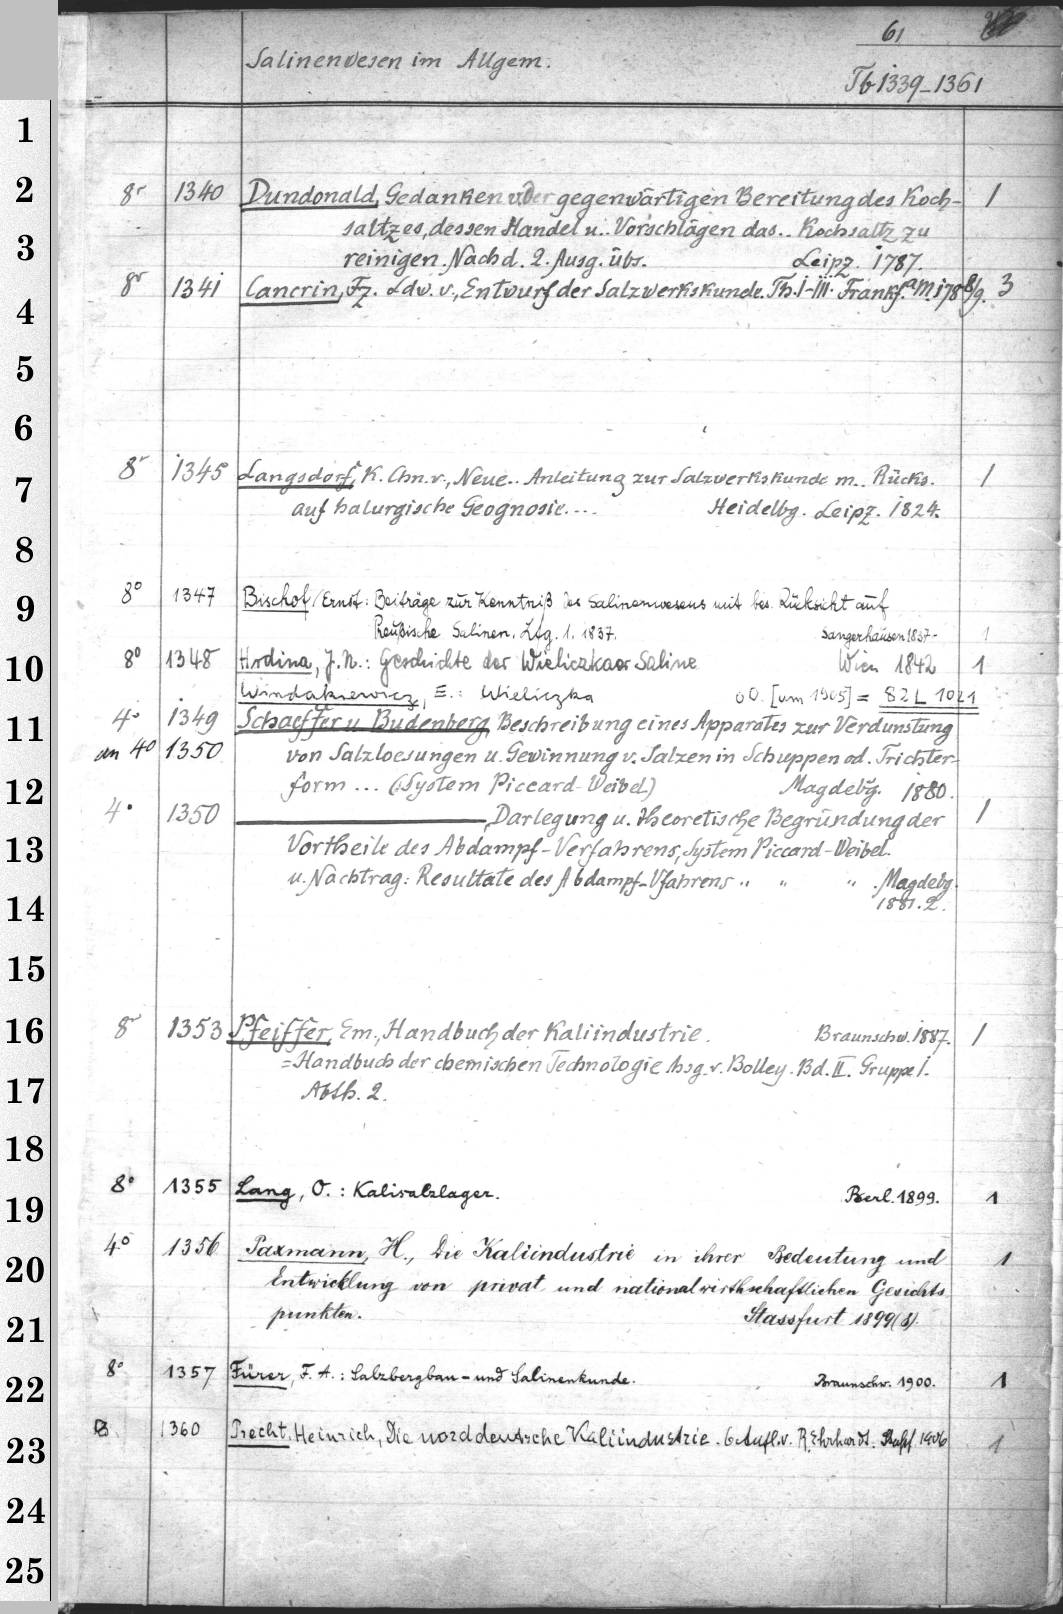 61
Salinenwesen im Allgem.
Tb 1339-1361
1
2
3
4
5
6
7
8
9
10
11
12
13
14
15
16
17
18
19
20
21
22
23
24
25
8r 1340 Dundonald, Gedanken gegenwärtigen Bereitung des Koch- 1
saltzes, dessen Handel u.. Vorschlägen das.. Kochsaltz zu
reinigen. Nach d. 2. Ausg. übs. Leipz. 1787.
8r 1341 Cancrin, Fz. Ldw. v., Entwurf der Salzwerkskunde. Th. I-III. Frankf. a M. 1788/9. 3
8r 1345 Langsdorf, K. Chn. v., Neue.. Anleitung zur Salzwerkskunde m.. Rücks. 1
auf halurgische Geognosie.... Heidelbg. Leipz. 1824.
8o 1347 Bischof, Ernst: Beiträge zur Kenntniß des Salinenwesens mit bes. Rücksicht auf
Preußische Salinen. Lfg. 1. 1837. Sangerhausen 1837- 1
8o 1348 Hrdina, J. N.: Geschichte der Wieliczkaer Saline Wien 1842 1
Windakiewicz, E.: Wieliczka o O. [um 1905] = 82 L 1021
4o 1349 Schaeffer u Budenberg Beschreibung eines Apparates zur Verdunstung
an 4o 1350 von Salzloesungen u. Gewinnung v. Salzen in Schuppen od. Trichter-
form ... (System Piccard-Weibel) Magdebg. 1880.
4o 1350 ————, Darlegung u. theoretische Begründung der 1
Vortheile des Abdampf-Verfahrens, System Piccard-Weibel.
u. Nachtrag: Resultate des Abdampf-Vfahrens " " " . Magdebg.
1881. 2.
8r 1353 Pfeiffer, Em., Handbuch der Kaliindustrie. Braunschw. 1887. 1
=Handbuch der chemischen Technologie hsg. v. Bolley. Bd. II. Gruppe 1.
Abth. 2.
8o 1355 Lang, O.: Kalisalzlager. Berl. 1899. 1
4o 1356 Paxmann, H., Die Kaliindustrie in ihrer Bedeutung und 1
Entwicklung von privat und nationalwirthschaftlichen Gesichts
punkten. Stassfurt 1899
8o 1357 Fürer, F. A.: Salzbergbau- und Salinenkunde. Braunschw. 1900. 1
8 1360 Precht, Heinrich, Die norddeutsche Kaliindustrie. 6 Aufl. v. R. Ehrhardt. Staßf. 1906 1